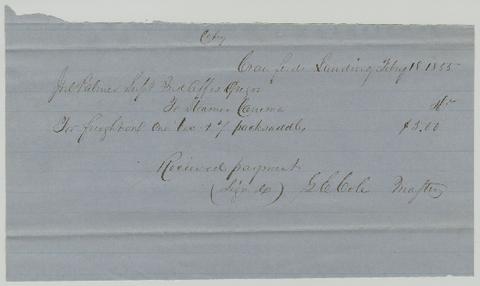 Copy
Crawfords Landing Feby 18 1855
Joel Palmer Supt Ind Affrs Oregon
To Steamer Canema Dr
For freight on one box & pack saddles $3.00
Received payment
(Signed) G C Cole Master